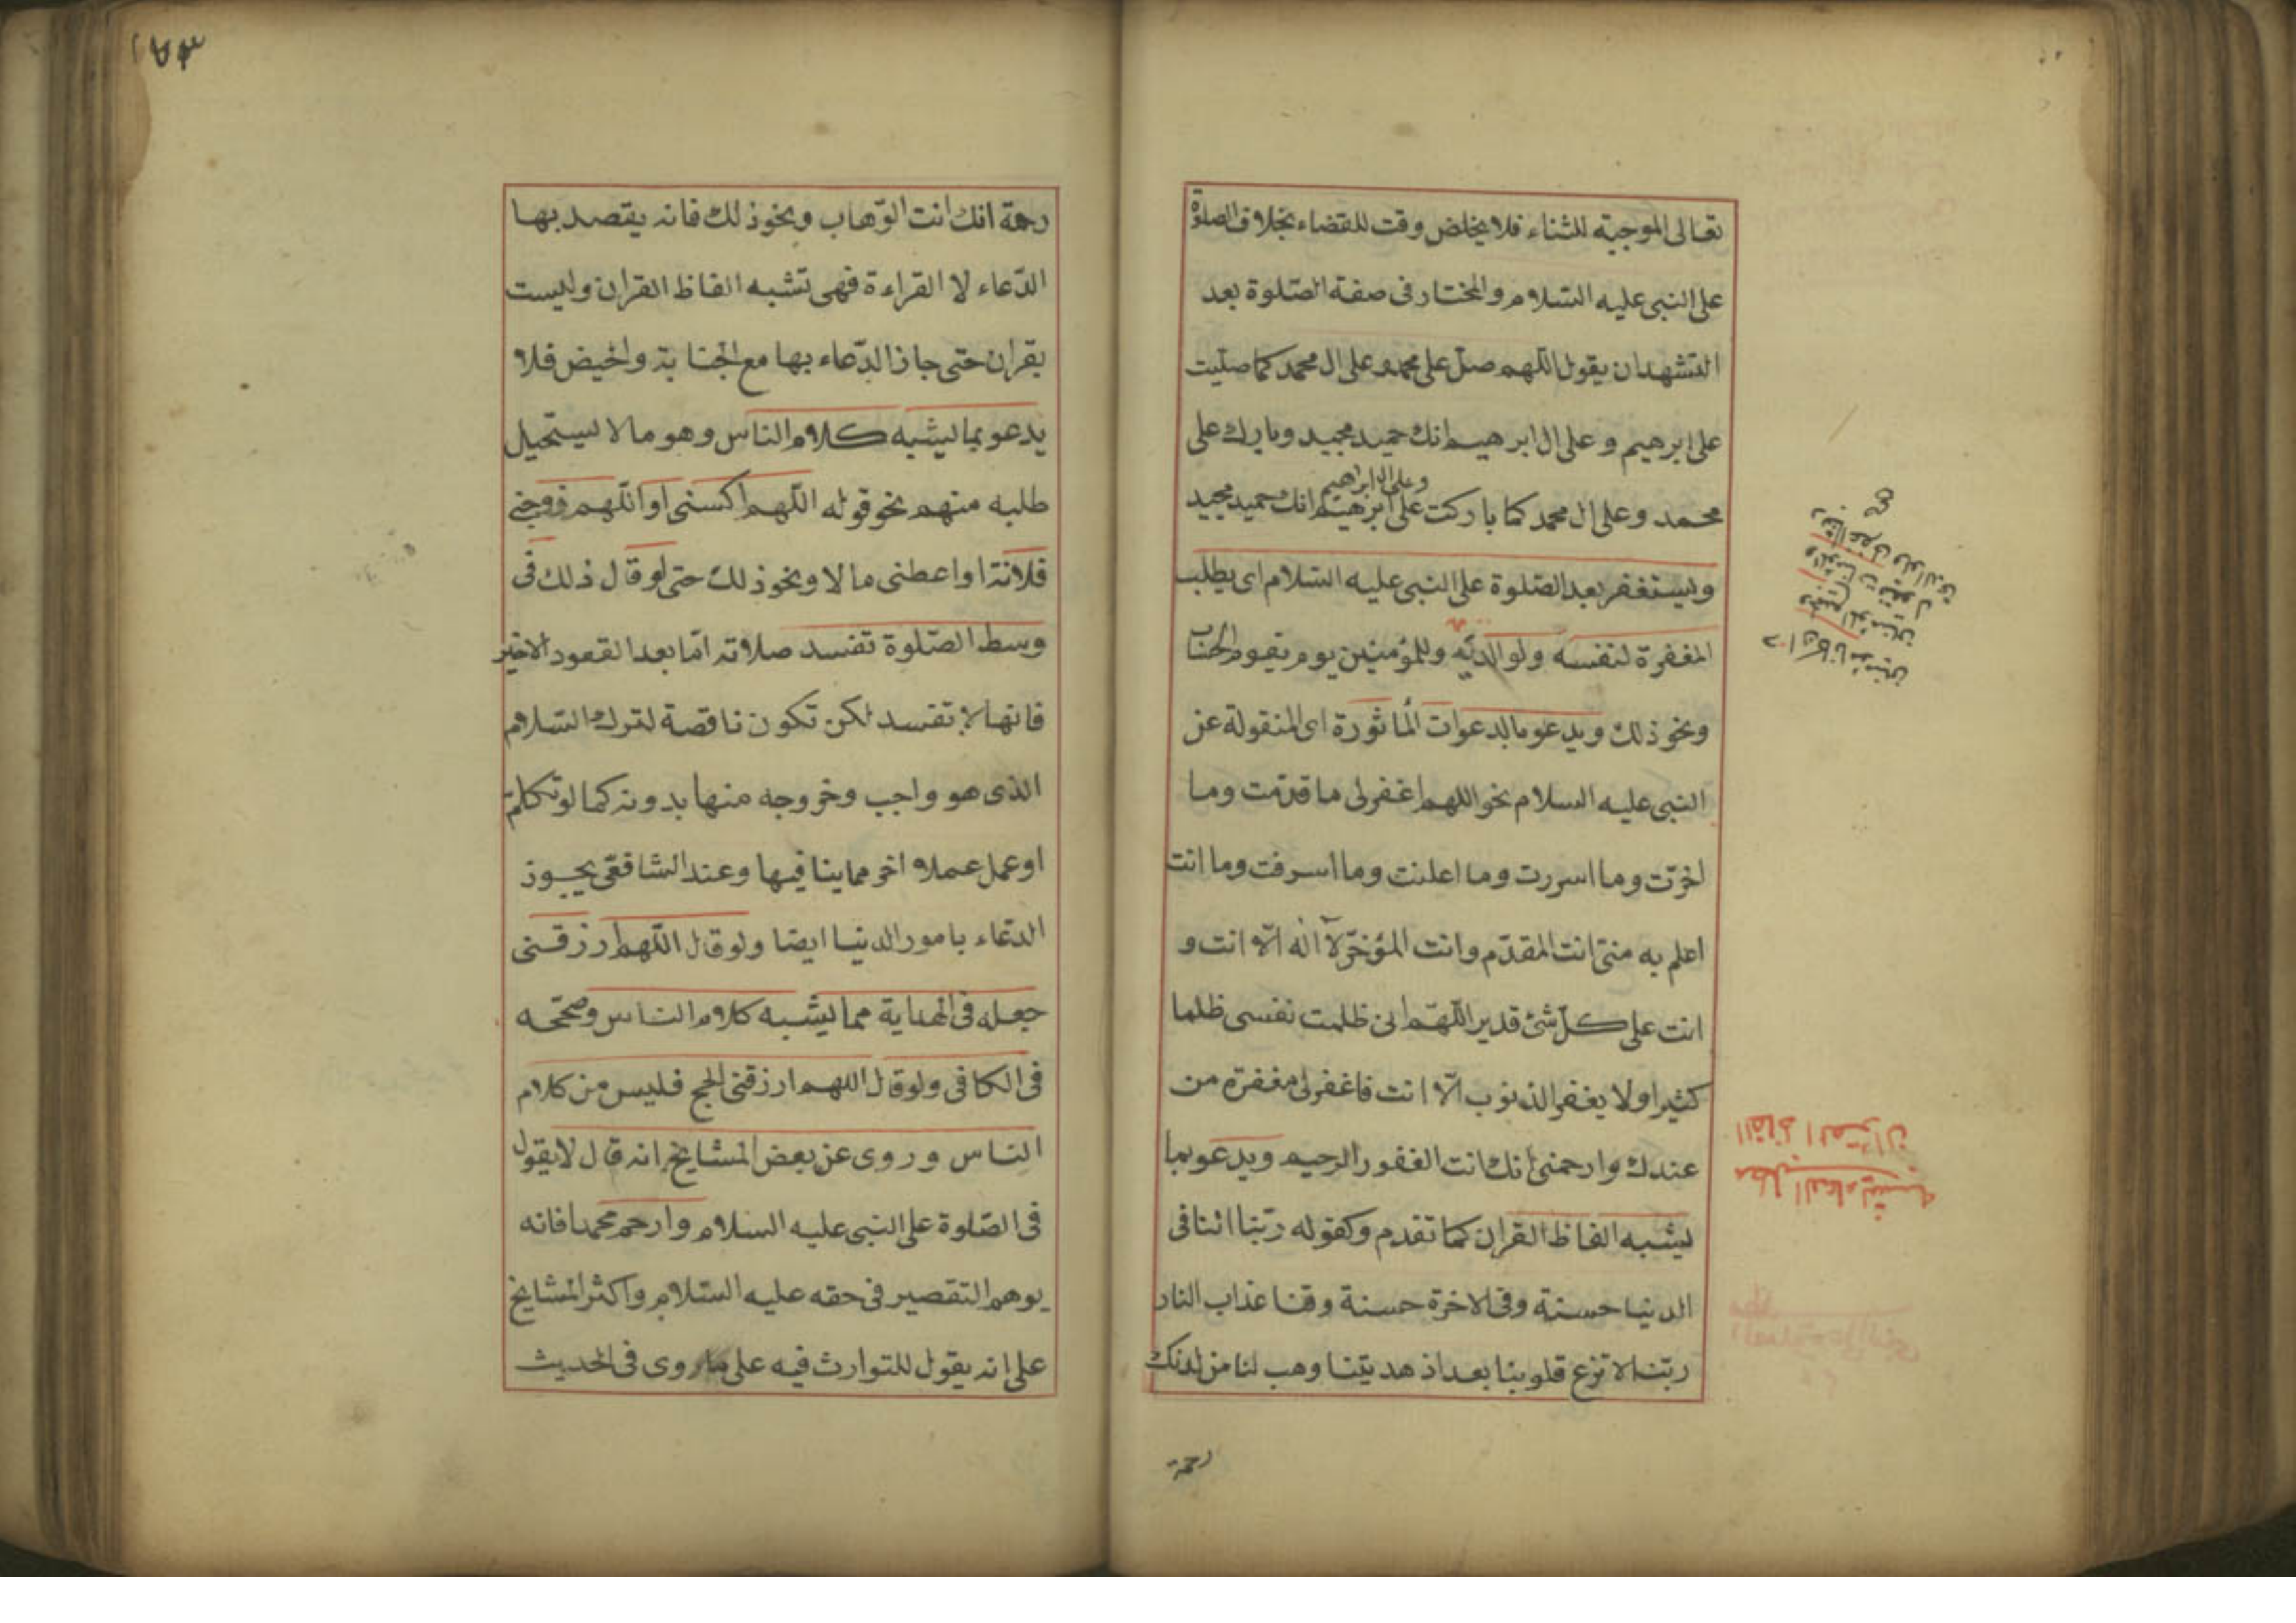 تعالى الموجبة للثناء فلا يخلص وقت للقضاء بخلاف الصلوة
على النبى عليه السلام والمختار فى صفة الصلوة بعد
التشهد ان يقول اللهم صل على محمد وعلى ال محمد كما صليت
على ابرهيم وعلى ال ابرهيم انك حميد مجيد وبارك على
محمد وعلى ال محمد كما باركت على ابرهيم وعلى ال ابراهيم انك حميد مجيد
ويستغفر بعد الصلوة على النبى عليه السلام اى يطلب
المغفرة لنفسه ولوالديه وللمؤمنين يوم يقوم الحساب
ونحو ذلك ويدعو بالدعوات المأثورة اى المنقولة عن
النبى عليه السلام نحو اللهم اغفر لى ما قدمت وما
اخرت وما اسررت وما اعلنت وما اسرفت وما انت
اعلم به منى انت المقدم وانت المؤخر لآ اله الا انت و
انت على كل شئ قدير اللهم انى ظلمت نفسى ظلما
كثيرا ولا يغفر الذنوب الا انت فاغفر لى مغفرة من
عندك وارحمنى انك انت الغفور الرحيم ويدعو بما
يشبه الفاظ القران كما تقدم وكقوله ربنا اتنا فى
الدنيا حسنة وفى الاخرة حسنة وقنا عذاب النار
ربنا لا تزغ قلوبنا بعد اذ هديتنا وهب لنا من لدنك
رحمة
مطلب الدعاء يشبه
الفاظ القران
١٧٣
رحمة انك انت الوهاب ونحو ذلك فانه يقصد بها
الدعاء لا القراءة فهى تشبه الفاظ القران وليست
بقران حتى جاز الدعاء بها مع الجنابة والحيض فلا
يدعو بما يشبه كلام الناس وهو ما لا يستحيل
طلبه منهم نحو قوله اللهم اكسنى او اللهم زوجنى
فلانة او اعطنى مالا ونحو ذلك حتى لو قال ذلك فى
وسط الصلوة تفسد صلاته اما بعد القعود الاخير
فانها لا تفسد لكن تكون ناقصة لترك السلام
الذى هو واجب وخروجه منها بدونه كما لو تكلم
او عمل عملا اخر مما ينافيها وعند الشافعى يجوز
الدعاء بامور الدنيا ايضا ولو قال اللهم ارزقنى
جعله فى الهداية مما يشبه كلام الناس وصححه
فى الكافى ولو قال اللهم ارزقنى الحج فليس من كلام
الناس وروى عن بعض المشايخ انه قال لا يقول
فى الصلوة على النبى عليه السلام وارحم محمدا فانه
يوهم التقصير فى حقه عليه السلام واكثر المشايخ
على انه يقول للتوارث فيه على ما روى فى الحديث